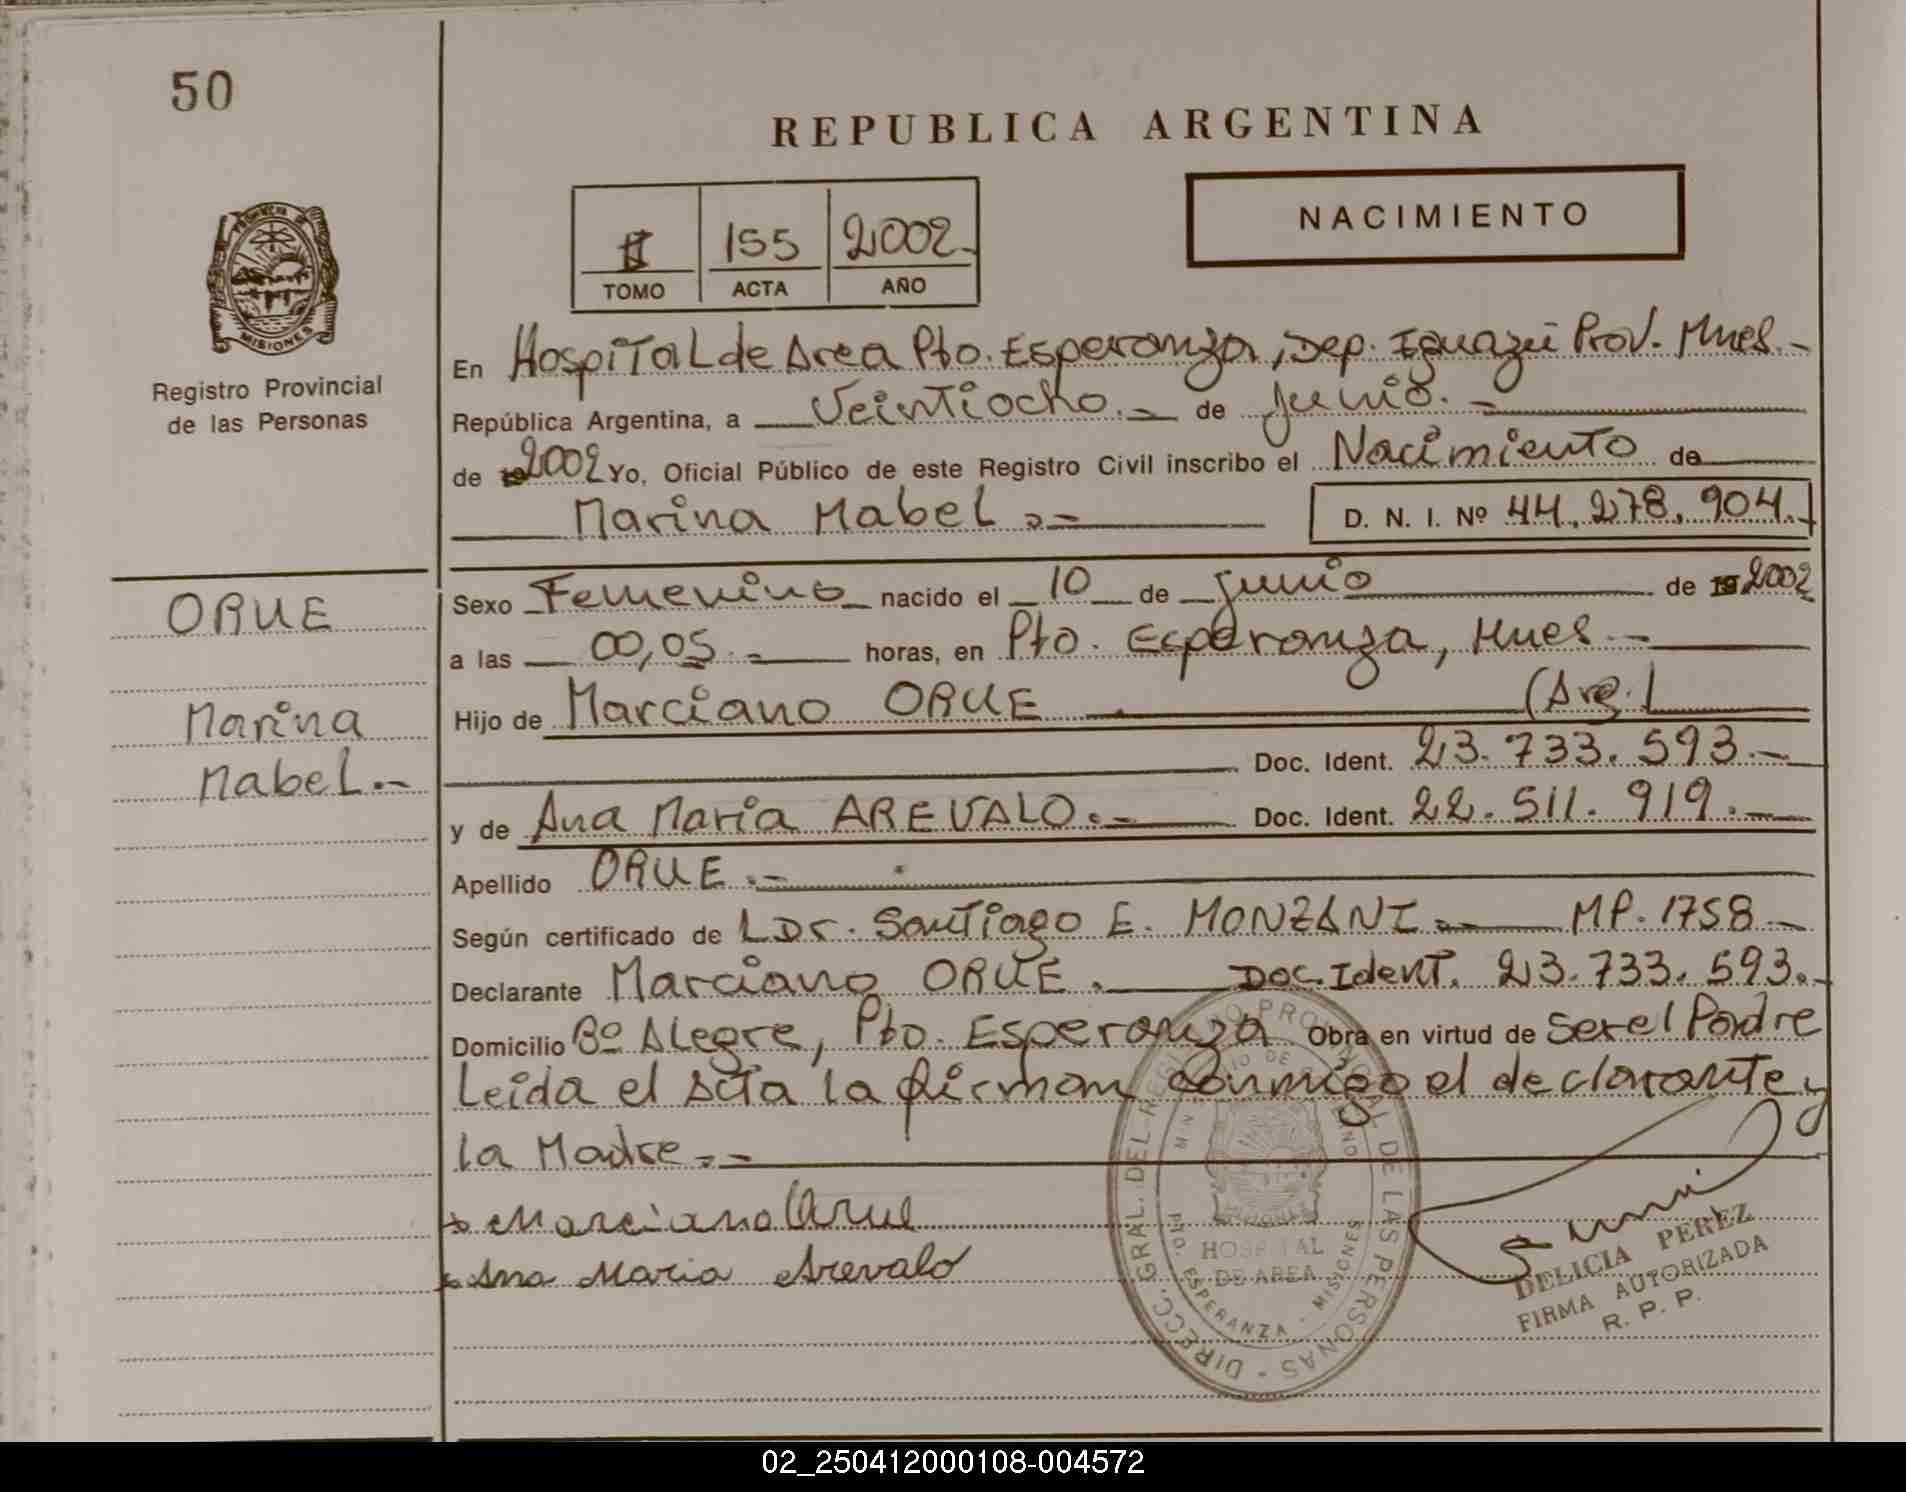 50
REPUBLICA ARGENTINA
NACIMIENTO
155 2002.-
TOMO ACTA AÑO
PROVINCIA DE
MISIONES
Registro Provincial
de las Personas
En Hospital de Area Pto. Esperanza, Dep. Iguazú Prov. Mnes.-
República Argentina, a Veintiocho.- de junio.-
de 2002 Yo, Oficial Público de este Registro Civil inscribo el Nacimiento de
Marina Mabel.- D. N. I. Nº 44.278.904.-
ORUE
Marina
Mabel.-
Sexo Femenino nacido el 10 de junio de 19 2002
a las 00,05.- horas, en Pto. Esperanza, Mnes.-
Hijo de Marciano ORUE (Arg.)
Doc. Ident. 23.733.593.-
y de Ana Maria AREVALO.- Doc. Ident. 22.511.919.-
Apellido ORUE.-
Según certificado de L Dr. Santiago E. MONZANI.- MP. 1758.-
Declarante Marciano ORUE. Doc. Ident. 23.733.593.-
Domicilio Bº Alegre, Pto. Esperanza Obra en virtud de Ser el Padre
Leida el Acta la firman conmigo el declarante y
la Madre.-
Marciano Orue
Ana Maria Arevalo
DIRECC. GRAL. DEL REGISTRO PROVINCIAL DE LAS PERSONAS
HOSPITAL
DE AREA
PTO. ESPERANZA - MISIONES
DELICIA PEREZ
FIRMA AUTORIZADA
R. P. P.
02_250412000108-004572